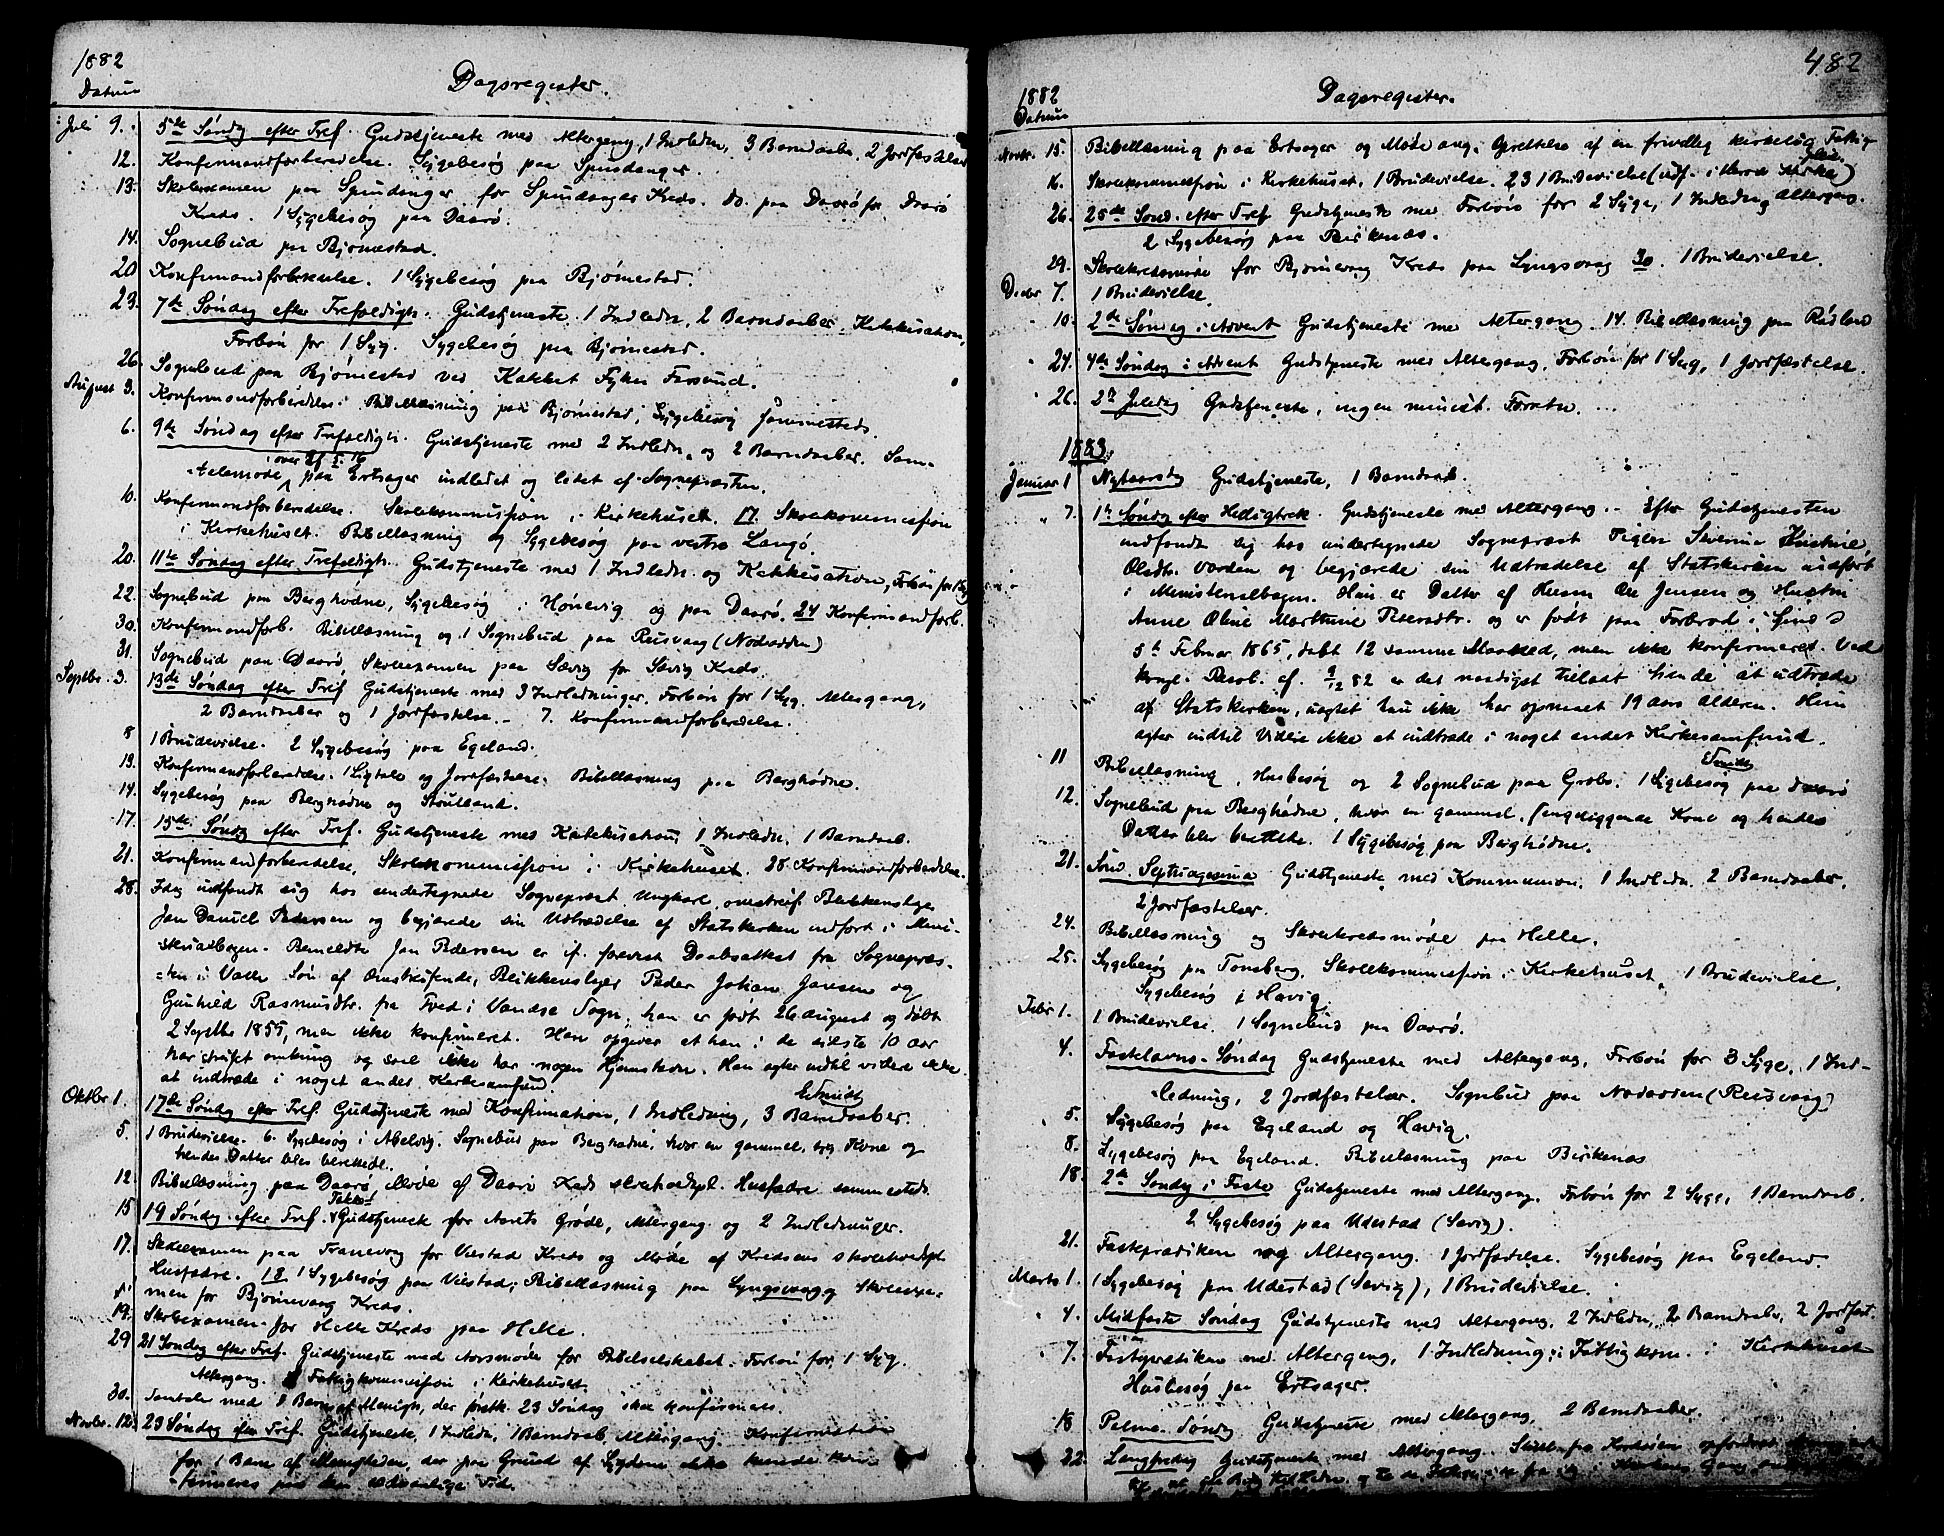 1882
Datum
Dagsregister.
Juli 9. 5te Søndg efter Tref. Gudstjeneste med Altergang, 1 Indledn, 3 Barndaaber, 2 Jordfæstelser
12. Konfirmandforberedelse. Sygebesøg paa Spindanger.
13. Skoleexamen paa Spindanger for Spindanger Kreds. do. paa Daarø for Daarø
Kreds. 1 Sygebesøg paa Daarø.
14. Sognebud paa Bjørnestad.
20 Konfirmandforberedelse. 1 Sygebesøg paa Bjørnestad.
23. 7de Søndag efter Trefoldigh. Gudstjeneste 1 Indledn, 2 Barndaaber, Katekisation,
Forbøn for 1 Syg. Sygebesøg paa Bjørnestad.
26. Sognebud paa Bjørnestad ved Farsund.
August 3. Konfirmandforberedelse. Bibellæsning paa Bjørnestad, Sygebesøg sammesteds.
6. 9de Søndag efter Trefoldigh. Gudstjeneste med 2 Indledn. og 2 Barndaaber. Sam-
talemøde over paa Ertsager indledet og ledet af Sognepræsten.
10. Konfirmandforberedelse. Skolekommission i Kirkehuset. 17. Skolekommission
i Kirkehuset. Bibellæsning og Sygebesøg paa vestre Langø.
20. 11te Søndag efter Trefoldigh. Gudstjeneste med 1 Indledn. og Katekisation, Forbøn for 1 Syg
22. Sognebud paa Berghødne, Sygebesøg i Hønevig og paa Daarø. 24 Konfirmandforb.
30. Konfirmandforb. Bibellæsning og 1 Sognebud paa Reisvaag (Nodadden)
31. Sognebud paa Daarø, Skoleexamen paa Sævig for Sævig Kreds.
Septbr. 3. 13de Søndag efter Tref Gudstjeneste med 3 Indledninger, Forbøn for 1 Syg. Altergang,
2 Barndaaber og 1 Jordfæstelse. – 7. Konfirmandforberedelse.
8 1 Brudevielse. 2 Sygebesøg paa Egeland.
13. Konfirmandforberedelse. 1 Ligtale og Jordfæstelse. Bibellæsning paa Berghødne.
14. Sygebesøg paa Berghødne og Stoutland.
17. 15de Søndg efter Tref. Gudstjeneste med Katekisation, 1 Indledn, 1 Barndaab.
21. Konfirmandforberedelse, Skolekommission i Kirkehuset. 28. Konfirmandforberedelse.
28. Idag indfandt sig hos undertegnede Sognepræst Ungkarl, omstreif. Blikkenslager
Jan Daniel Pedersen og begjærede sin Udtrædelse af Statskirken indført i Mini-
sterialbogen. Bemeldte Jan Pedersen er if. forevist Daabsattest fra Sognepræs-
ten i Valle Søn af Omstreifende, Blikkenslager Peder Johan Jansen og
Gunhild Rasmusdtr. fra Tved i Vandsø Sogn, han er født 26 august og døbt
2 Septbr 1855, men ikke konfirmeret. Han opgiver at han i de sidste 10 aar
har streifet omkring og saal ikke har nogen Hjemstedn. Han agter indtil videre ikke
at indtræde i noget andet Kirkesamfund. Schmidt
Oktbr 1. 17de Søndg efter Tref. Gudstjeneste med Konfirmation, 1 Indledning, 3 Barndaaber.
5. 1 Brudevielse. 6. Sygebesøg i Abelvig. Sognebud paa Berghødne, hvor en gammel, syg Kone og
hendes Datter blev berettede.
12. Bibellæsning paa Daarø Møde af Daarø Kreds skoleforpl. Husfædre sammesteds.
15 19 Søndag efter Tref. Takke Gudstjeneste for Aarets Grøde, Altergang og 2 Indledninger.
17. Skoleexamen paa Tranevaag for Viestad Kreds og Møde af Kredsens skoleforpl.
Husfædre. 18 1 Sygebesøg paa Viestad; Bibellæsning paa Lyngsvaag Skoleexa-
men for Bjørnevaag Kreds.
19. Skoleexamen for Helle Kreds paa Helle.
29 21 Søndag efter Tref. Gudstjeneste med Aarsmøde for Bibelselskabet. Forbøn for 1 Syg.
Altergang. Fattigkommission i Kirkehuset.
30. Samtale med 1 Barn af Menigh, der førstk. 23 Søndag skal konfirmeres.
Novbr. 12. 23 Søndag efter Tref. Gudstjeneste, 1 Indledn, 1 Barndaab Altergang. Konfirmation
for 1 Barn af Menigheden, der paa Grund af Sygdom ikke kunde kon-
firmeres paa den sædvanlige Tid.
482
1882
Datum
Dagsregister.
Novbr. 15. Bibellæsning paa Ertsager og Møde ang. Oprettelse af en frivillig kirkelig Fattig-
pleie.
16. Skolekommission i Kirkehuset. 1 Brudevielse. 23 1 Brudevielse (udf. i Herred Kirke)
26. 25de Sønd. efter Tref Gudstjeneste med Forbøn for 2 Syge, 1 Indledn, Altergang.
2 Sygebesøg paa Birkenæs.
29. Skolekredsmøde for Bjørnevaag Kreds paa Lyngsvaag 30. 1 Brudevielse.
Decbr 7. 1 Brudevielse.
10. 2den Søndag i Advent Gudstjeneste med Altergang. 14. Bibellæsning paa Rødland
24. 4de Søndag i Advent Gudstjeneste med Altergang, Forbøn for 1 Syg, 1 Jordfæstelse.
26. 2den Juledag Gudstjeneste, ingen minist. Forretn.
1883.
Januar 1 Nytaarsdag Gudstjeneste, 1 Barndaab.
7. 1ste Søndag efter Helligtrek. Gudstjeneste med Altergang. – Efter Gudstjenesten
indfandt sig hos undertegnede Sognepræst Pigen Severine Kristine
Olsdtr. Varden og begjærede sin Udtrædelse af Statskirken indført
i Ministerialbogen. Hun er Datter af Husm Ole Jensen og Hustru
Anne Oline Marthine Petersdtr. og er født paa Forbrod i Lund S
5te Februar 1865, døbt 12 samme Maaned, men ikke konfirmeret. Ved
kongl. Resol. af 9/12 82 er det naadigst tilladt hende at udtræde
af Statskirken, uagtet hun ikke har opnaaet 19 aars alderen. Hun
agter indtil Videre ikke at indtræde i noget andet Kirkesamfund.
Schmidt
11 Bibellæsning, Husbesøg og 2 Sognebud paa Grobs. 1 Sygebesøg paa Daarø
12. Sognebud paa Berghødne, hvor en gammel, sengeliggende Kone og hendes
Datter blev berettede. 1 Sygebesøg paa Berghødne.
21. Sønd. Septuagesima Gudstjeneste med Kommunion. 1 Indledn. 2 Barndaaber,
2 Jordfæstelser.
24. Bibellæsning og Skolekredsmøde paa Helle.
25. Sygebesøg paa Tonsberg. Skolekommission i Kirkehuset, 1 Brudevielse,
Sygebesøg i Havig.
Febr 1. 1 Brudevielse. 1 Sognebud paa Daarø.
4. Fastelavns-Søndag Gudstjeneste med Altergang, Forbøn for 3 Syge, 1 Ind-
ledning, 2 Jordfæstelser. Sognebud paa Nodadden (Reisvaag)
5. Sygebesøg paa Egeland og Havig.
8. Sygebesøg paa Egeland. Bibellæsning paa Birkenæs
18. 2den Søndag i Faste Gudstjeneste med Altergang, Forbøn for 2 Syge, 1 Barndaab.
2 Sygebesøg paa Udestad (Sævig).
21. Fasteprædiken og Altergang. 1 Jordfæstelse. Sygebesøg paa Egeland.
Marts 1. 1 Sygebesøg paa Udestad (Sævig), 1 Brudevielse.
4. Midfaste Søndag Gudstjeneste med Altergang, 2 Indledn, 2 Barndaaber, 2 Jordfæst.
7. Fasteprædiken med Altergang, 1 Indledning; Fattigkom. i Kirkehuset
Husbesøg paa Ertsager.
18 Palme-Søndg Gudstjeneste med Altergang, 2 Barndaaber.
22. Langfredag Gudstjeneste med Altergang.